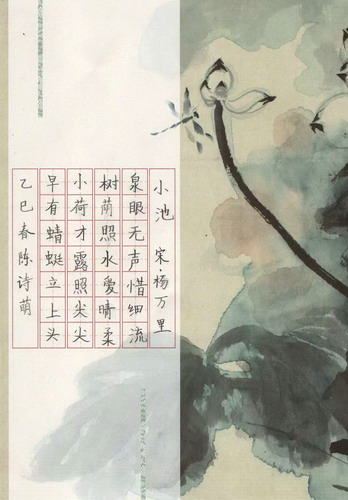 小池 宋·杨万里
泉眼无声惜细流
树荫照水爱晴柔
小荷才露照尖尖
早有蜻蜓立上头
乙巳春陈诗萌